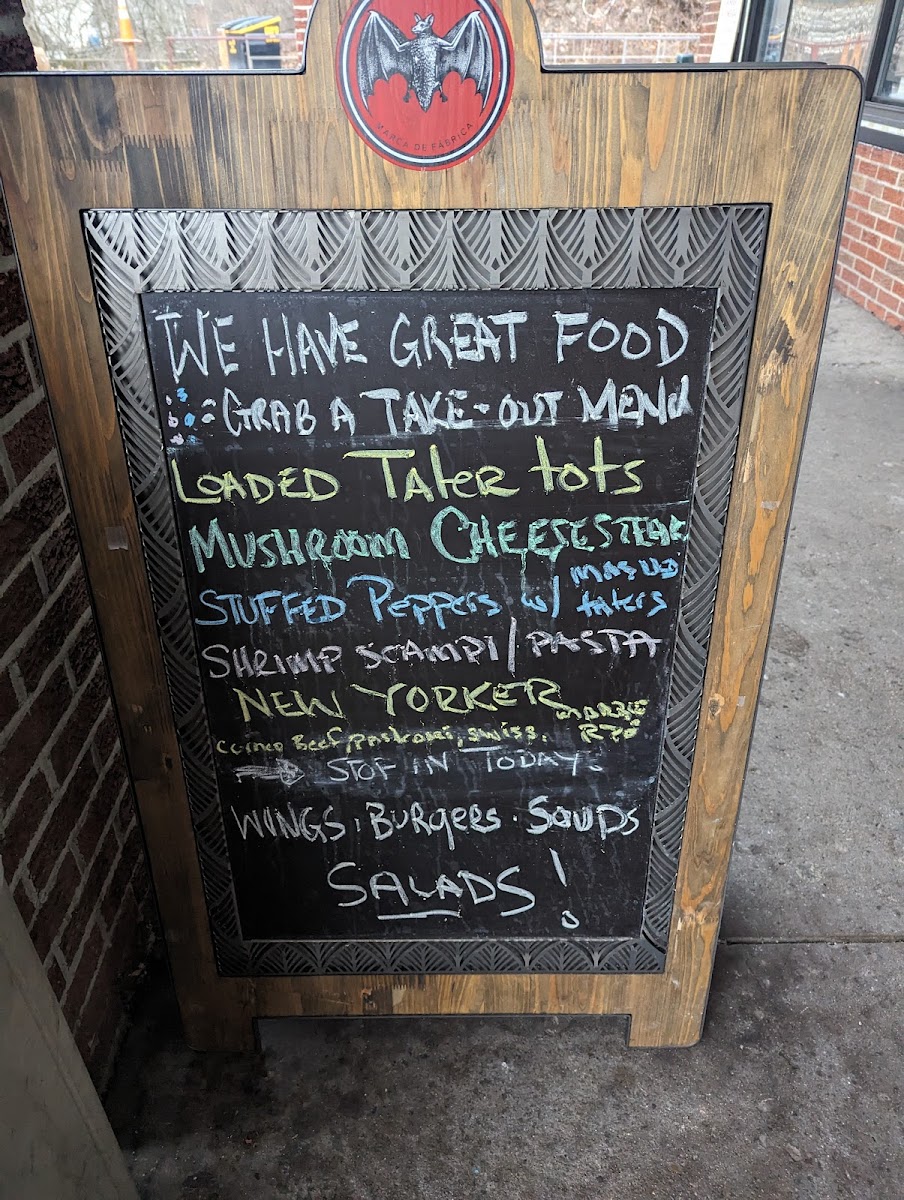 MARCA DE FÁBRICA
WE HAVE GREAT FOOD
GRAB A TAKE-OUT MENU
LOADED TATER tots
MUSHROOM CHEESESTEAK
STUFFED PEPPERS w/ MASHED taters
SHRIMP SCAMPI/PASTA
NEW YORKER
corned Beef, pastrami, swiss. MARBLE RYE
STOP IN TODAY.
WINGS. BURgeRS. SOUPS
SALADS!